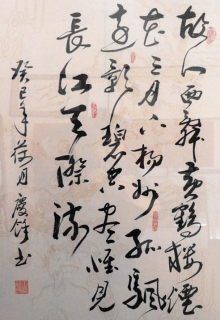 故人西辭黃鶴樓煙
花三月下楊州孤颿
遠影碧空盡惟見
長江天際流
癸巳年荷月慶書